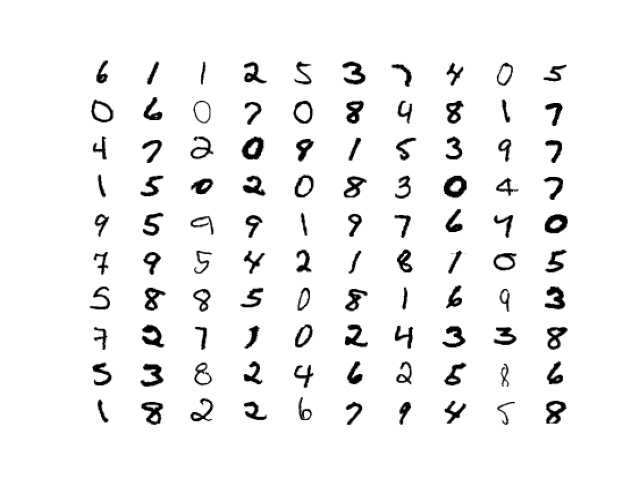 6 1 1 2 5 3 7 4 0 5
0 6 0 7 0 8 4 8 1 7
4 7 2 0 9 1 5 3 9 7
1 5 0 2 0 8 3 0 4 7
9 5 9 9 1 9 7 6 4 0
7 9 5 4 2 1 8 1 0 5
5 8 8 5 0 8 1 6 9 3
7 2 7 1 0 2 4 3 3 8
5 3 8 2 4 6 2 5 8 6
1 8 2 2 6 7 9 4 5 8